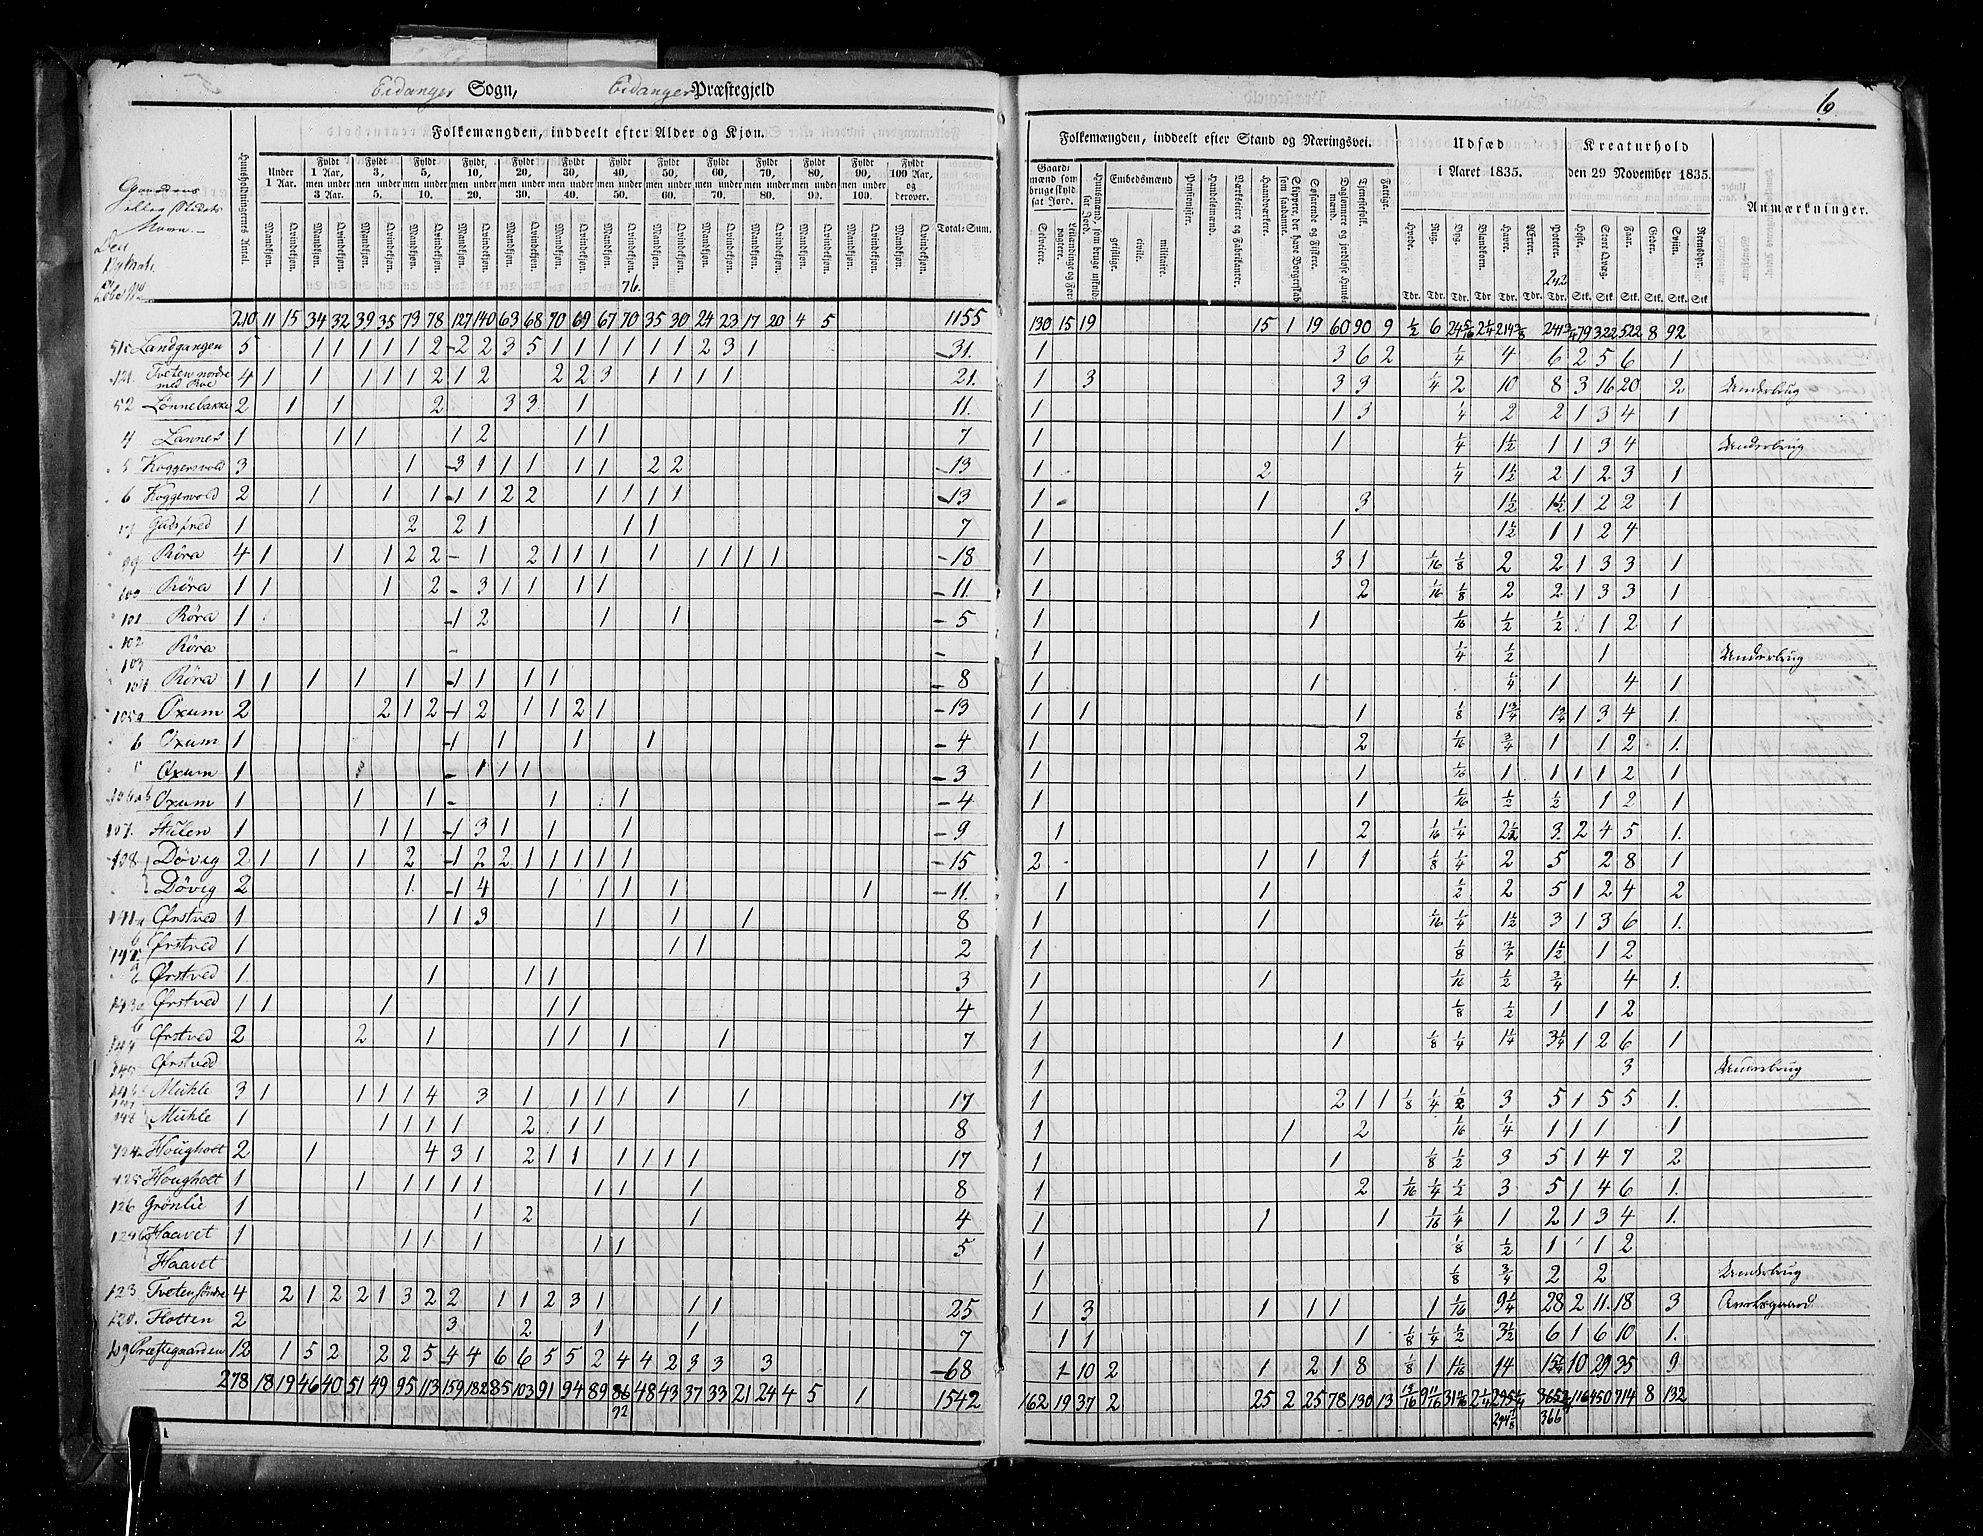 Eidanger Sogn, Eidanger Præstegjeld
6
Folkemængden, inddeelt efter Alder og Kjøn.
Folkemængden, inddeelt efter Stand og Næringsvei.
Udsæd i Aaret 1835.
Kreaturhold den 29 November 1835.
Anmærkninger.
Gaardens eller Stedets Navn.
Huusholdningernes Antal.
Under 1 Aar.
Fyldt 1 Aar, men under 3 Aar.
Fyldt 3, men under 5.
Fyldt 5, men under 10.
Fyldt 10, men under 20.
Fyldt 20, men under 30.
Fyldt 30, men under 40.
Fyldt 40, men under 50.
Fyldt 50, men under 60.
Fyldt 60, men under 70.
Fyldt 70, men under 80.
Fyldt 80, men under 90.
Fyldt 90, men under 100.
Fyldt 100 Aar, og derover.
Mandkjøn. Qvindekjøn.
Total-Sum.
Gaardmænd som bruge skyldsat Jord.
Selveiere.
Embedsmænd
geistlige. civile. militaire.
Pensionister.
Handelsmænd.
Værkseiere og Fabrikanter.
Haandværkere.
Skippere, der have Borgerskab som saadanne.
Søfarende og Fiskere.
Dagleiere og jordløse Huusmænd.
Tjenestefolk.
Fattige.
Hvede. Rug. Byg. Blandkorn. Havre. Ærter. Poteter.
Heste. Stort Qvæg. Faar. Geder. Sviin. Rensdyr.
Tdr. Tdr. Tdr. Tdr Tdr. Tdr. Tdr. Stk. Stk. Stk. Stk. Stk. Stk
76.
242
210 11 15 34 32 39 35 73 78 127 140 63 68 70 69 67 70 35 30 24 23 17 20 4 5 1155
130 15 19 15 1 19 60 90 9 ½ 6
51 Landgangen 5 1 1 1 1 1 2 2 2 3 5 1 1 1 1 1 1 2 3 1 31. 1 3 6 2 ¼ 4 6 2 5 6 1
121. Tveten nordre med Roe 4 21. 1 3 3 3 ¼ 2 10 8 3 16 20 2 Underbrug
52 Lønnebakke 2 1 1 2 3 3 1 11. 1 1 3 ¼ 2 2 1 3 4 1
4 Lanner 1 1 1 1 2 1 1 7 1 1 ¼ 1½ 1 1 3 4 Underbrug
5 Koggersvold 3 1 3 1 1 1 1 1 2 2 13 1 2 ¼ 1½ 2 1 2 3 1
6 Koggersvold 2 1 1 1 1 1 2 2 1 1 1 1 13 1 1 3 1½ 1½ 1 2 2 1
1 2 2 1 1 1 7 1 1 1½ 1 1 2 4
99 Røra 4 18 1 3 1 1/16 ⅛ 2 2 1 3 3 1
100 Røra 1 1 1 2 3 1 1 1 1 11. 1 2 1/16 ⅛ 2 2 1 3 3 1
101 Røra 1 1 2 1 1 5 1 1 1/16 ½ ½ 1 2 1
102 Røra 1 ¼ ½ 1 Underbrug
103 104 Røra 1 1 1 1 1 1 1 1 1 8 1 1 ¼ 1 4 1
105a Oxum 2 2 1 2 1 2 1 1 2 1 13 1 1 1 ⅛ 1¾ 1¾ 1 3 4 1.
b Oxum 1 1 1 1 1 4 1 2 1/16 ¾ 1 1 2 1.
Oxum 1 1 1 1 3 1 1 1/16 1 1 1 1 2 1
106 Oxum 1 1 1 1 1 4 1 1 1/16 ½ ½ 1 2 1
107. Stulen 1 1 1 1 3 1 1 1 9 1 2 1/16 ¼ 2½ 3 2 4 5 1.
108 Døvig 2 1 1 1 2 1 2 2 1 1 1 1 1 15 2 1 1 1 ⅛ ¼ 2 5 2 8 1
Døvig 2 1 1 4 1 1 1 1 1 11. 1 1 ½ 2 5 1 2 4 2
141a Ørstved 1 1 1 3 1 1 1 8 1 1 1/16 ¼ 1½ 3 1 3 6 1.
Ørstved 1 1 1 2 1 ⅛ ¾ 1½ 1 2
Ørstved 1 1 1 1 3 1 1 1/16 ½ ¾ 4 1.
143a Ørstved 1 1 1 1 1 4 1 ⅛ ½ 1 1 2
144 Ørstved 2 2 1 1 1 1 1 7 1 1 ⅛ ¼ 1¼ 3¼ 1 2 6 1
145 Ørstved 1 3 Underbrug
Mühle 3 1 1 1 1 4 3 1 1 1 1 1 1 17 1 2 1 1 ⅛ ¼ ½ 3 5 1 5 5 1.
148 Mühle 1 1 1 1 2 1 1 8 1 1 2 1/16 ¼ 1 1 1 1
124 Hougholt 2 1 4 3 1 2 1 1 1 1 1 1 17 1 1 ⅛ ½ 3 5 1 4 7 2
125 Hougholt 1 1 1 1 1 1 1 1 1 8 1 2 1/16 ¼ ½ 3 5 1 4 6 1.
126 Grönlie 1 1 2 1 4 1 1 1 1/16 ¼ 1 2 1 3 4 1.
Haavet 1 1 1 1 1 1 5 1 ⅛ ½ 1 1 2
Haavet 1 ⅛ ¾ 2 2 Underbrug
123 Tveten søndre 4 2 1 2 2 1 3 2 2 1 1 2 3 1 1 1 25 1 3 1 1 1 1 1/16 9¼ 28 2 11. 18 3
120. Flotten 2 3 2 1 1 7 1 1 1 ⅛ ¼ ½ 3½ 6 1 6 10 1.
109 Præstegaarden 12 1 5 2 2 2 5 4 4 6 6 5 5 2 4 4 2 3 3 3 68 1 10 2 1 2 1 8 ⅛ 1 14 10 29 35 9
278 18 19 46 40 51 49 95 113 159 182 85 103 91 94 89 86 48 43 37 33 21 24 4 5 1 1542
92
162 19 37 2 25 2 25 78 130 13 116 450 714 8 132
366